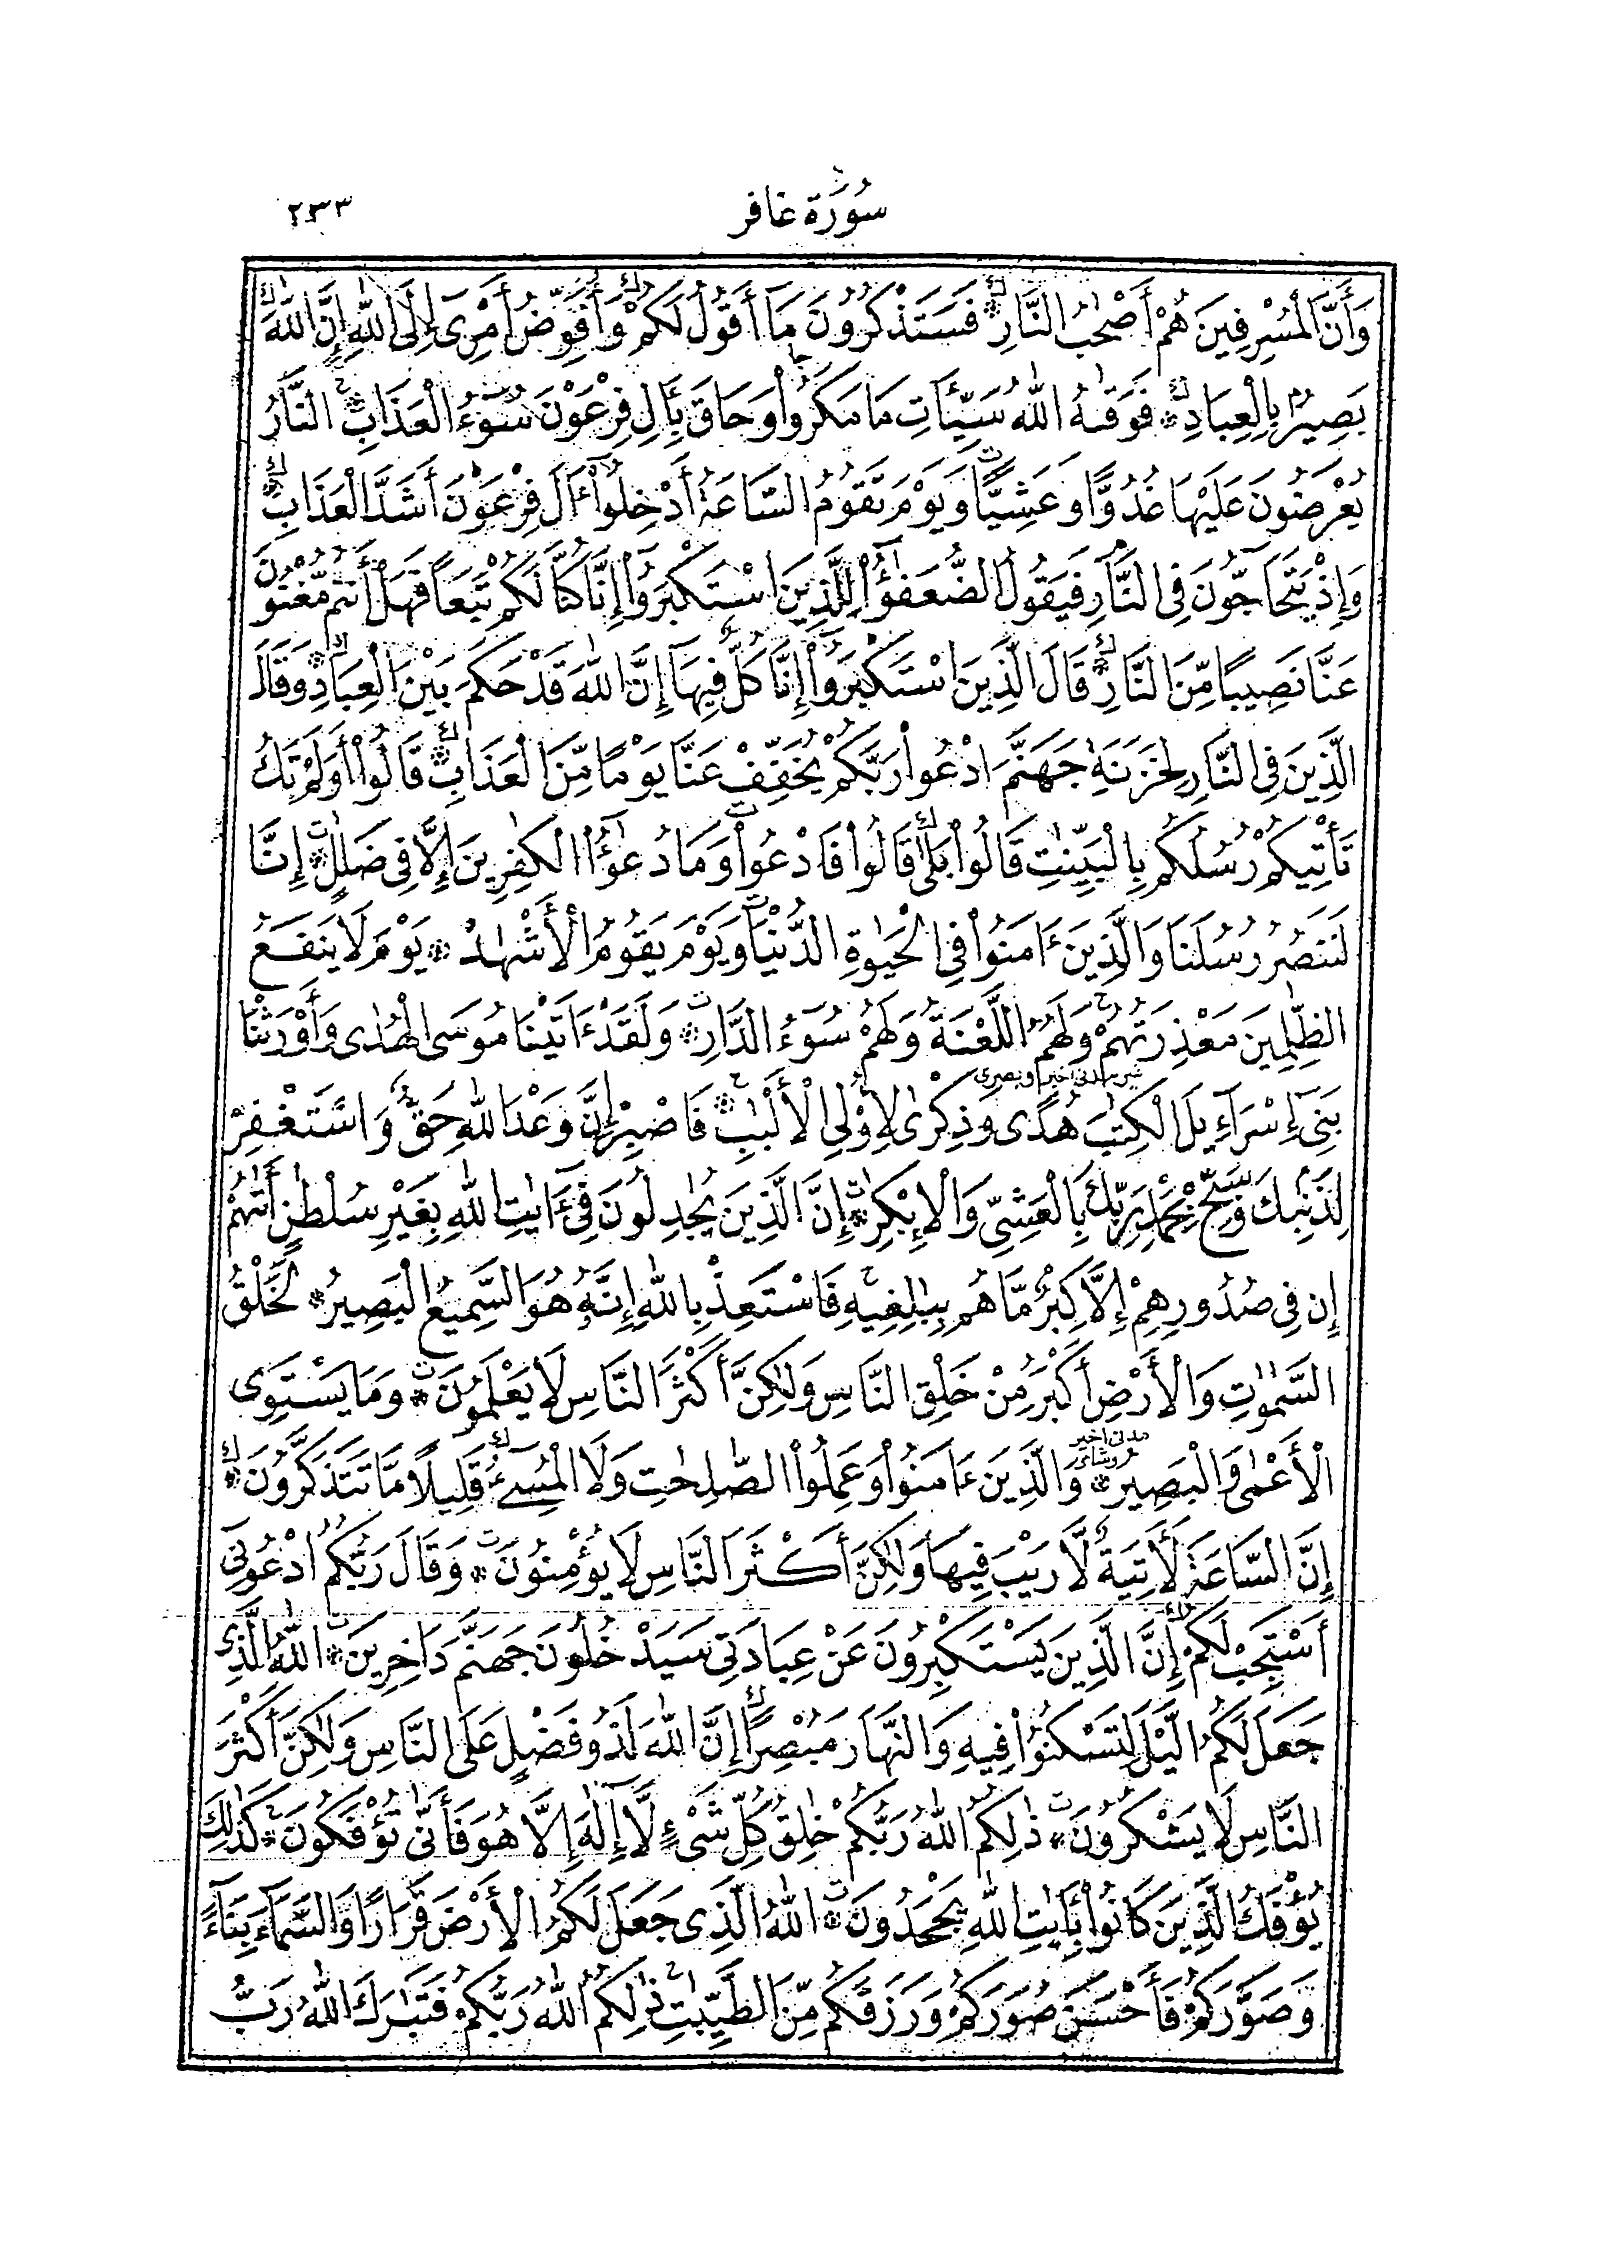 سُورَة غافر ٢٣٣
وَأَنَّ الْمُسْرِفِينَ هُمْ أَصْحَٰبُ النَّارِ ۞ فَسَتَذْكُرُونَ مَآ أَقُولُ لَكُمْ وَأُفَوِّضُ أَمْرِىٓ إِلَى اللَّهِ إِنَّ اللَّهَ
بَصِيرٌۢ بِالْعِبَادِ ۞ فَوَقَىٰهُ اللَّهُ سَيِّـَٔاتِ مَا مَكَرُوا۟ وَحَاقَ بِـَٔالِ فِرْعَوْنَ سُوٓءُ الْعَذَابِ ۞ النَّارُ
يُعْرَضُونَ عَلَيْهَا غُدُوًّا وَعَشِيًّا وَيَوْمَ تَقُومُ السَّاعَةُ أَدْخِلُوٓا۟ ءَالَ فِرْعَوْنَ أَشَدَّ الْعَذَابِ ۞
وَإِذْ يَتَحَآجُّونَ فِى النَّارِ فَيَقُولُ الضُّعَفَٰٓؤُا۟ لِلَّذِينَ اسْتَكْبَرُوٓا۟ إِنَّا كُنَّا لَكُمْ تَبَعًا فَهَلْ أَنتُم مُّغْنُونَ
عَنَّا نَصِيبًا مِّنَ النَّارِ ۞ قَالَ الَّذِينَ اسْتَكْبَرُوٓا۟ إِنَّا كُلٌّ فِيهَآ إِنَّ اللَّهَ قَدْ حَكَمَ بَيْنَ الْعِبَادِ ۞ وَقَالَ
الَّذِينَ فِى النَّارِ لِخَزَنَةِ جَهَنَّمَ ادْعُوا۟ رَبَّكُمْ يُخَفِّفْ عَنَّا يَوْمًا مِّنَ الْعَذَابِ ۞ قَالُوٓا۟ أَوَلَمْ تَكُ
تَأْتِيكُمْ رُسُلُكُم بِالْبَيِّنَٰتِ قَالُوا۟ بَلَىٰ قَالُوا۟ فَادْعُوا۟ وَمَا دُعَٰٓؤُا۟ الْكَٰفِرِينَ إِلَّا فِى ضَلَٰلٍ ۞ إِنَّا
لَنَنصُرُ رُسُلَنَا وَالَّذِينَ ءَامَنُوا۟ فِى الْحَيَوٰةِ الدُّنْيَا وَيَوْمَ يَقُومُ الْأَشْهَٰدُ ۞ يَوْمَ لَا يَنفَعُ
الظَّٰلِمِينَ مَعْذِرَتُهُمْ وَلَهُمُ اللَّعْنَةُ وَلَهُمْ سُوٓءُ الدَّارِ ۞ وَلَقَدْ ءَاتَيْنَا مُوسَى الْهُدَىٰ وَأَوْرَثْنَا
بَنِىٓ إِسْرَٰٓءِيلَ الْكِتَٰبَ ۞ هُدًى وَذِكْرَىٰ لِأُو۟لِى الْأَلْبَٰبِ ۞ فَاصْبِرْ إِنَّ وَعْدَ اللَّهِ حَقٌّ وَاسْتَغْفِرْ
لِذَنۢبِكَ وَسَبِّحْ بِحَمْدِ رَبِّكَ بِالْعَشِىِّ وَالْإِبْكَٰرِ ۞ إِنَّ الَّذِينَ يُجَٰدِلُونَ فِىٓ ءَايَٰتِ اللَّهِ بِغَيْرِ سُلْطَٰنٍ أَتَىٰهُمْ
إِن فِى صُدُورِهِمْ إِلَّا كِبْرٌ مَّا هُم بِبَٰلِغِيهِ فَاسْتَعِذْ بِاللَّهِ إِنَّهُۥ هُوَ السَّمِيعُ الْبَصِيرُ ۞ لَخَلْقُ
السَّمَٰوَٰتِ وَالْأَرْضِ أَكْبَرُ مِنْ خَلْقِ النَّاسِ وَلَٰكِنَّ أَكْثَرَ النَّاسِ لَا يَعْلَمُونَ ۞ وَمَا يَسْتَوِى
الْأَعْمَىٰ وَالْبَصِيرُ ۞ وَالَّذِينَ ءَامَنُوا۟ وَعَمِلُوا۟ الصَّٰلِحَٰتِ وَلَا الْمُسِىٓءُ قَلِيلًا مَّا تَتَذَكَّرُونَ ۞
إِنَّ السَّاعَةَ لَءَاتِيَةٌ لَّا رَيْبَ فِيهَا وَلَٰكِنَّ أَكْثَرَ النَّاسِ لَا يُؤْمِنُونَ ۞ وَقَالَ رَبُّكُمُ ادْعُونِىٓ
أَسْتَجِبْ لَكُمْ إِنَّ الَّذِينَ يَسْتَكْبِرُونَ عَنْ عِبَادَتِى سَيَدْخُلُونَ جَهَنَّمَ دَاخِرِينَ ۞ اللَّهُ الَّذِى
جَعَلَ لَكُمُ الَّيْلَ لِتَسْكُنُوا۟ فِيهِ وَالنَّهَارَ مُبْصِرًا إِنَّ اللَّهَ لَذُو فَضْلٍ عَلَى النَّاسِ وَلَٰكِنَّ أَكْثَرَ
النَّاسِ لَا يَشْكُرُونَ ۞ ذَٰلِكُمُ اللَّهُ رَبُّكُمْ خَٰلِقُ كُلِّ شَىْءٍ لَّآ إِلَٰهَ إِلَّا هُوَ فَأَنَّىٰ تُؤْفَكُونَ ۞ كَذَٰلِكَ
يُؤْفَكُ الَّذِينَ كَانُوا۟ بِـَٔايَٰتِ اللَّهِ يَجْحَدُونَ ۞ اللَّهُ الَّذِى جَعَلَ لَكُمُ الْأَرْضَ قَرَارًا وَالسَّمَآءَ بِنَآءً
وَصَوَّرَكُمْ فَأَحْسَنَ صُوَرَكُمْ وَرَزَقَكُم مِّنَ الطَّيِّبَٰتِ ذَٰلِكُمُ اللَّهُ رَبُّكُمْ فَتَبَارَكَ اللَّهُ رَبُّ